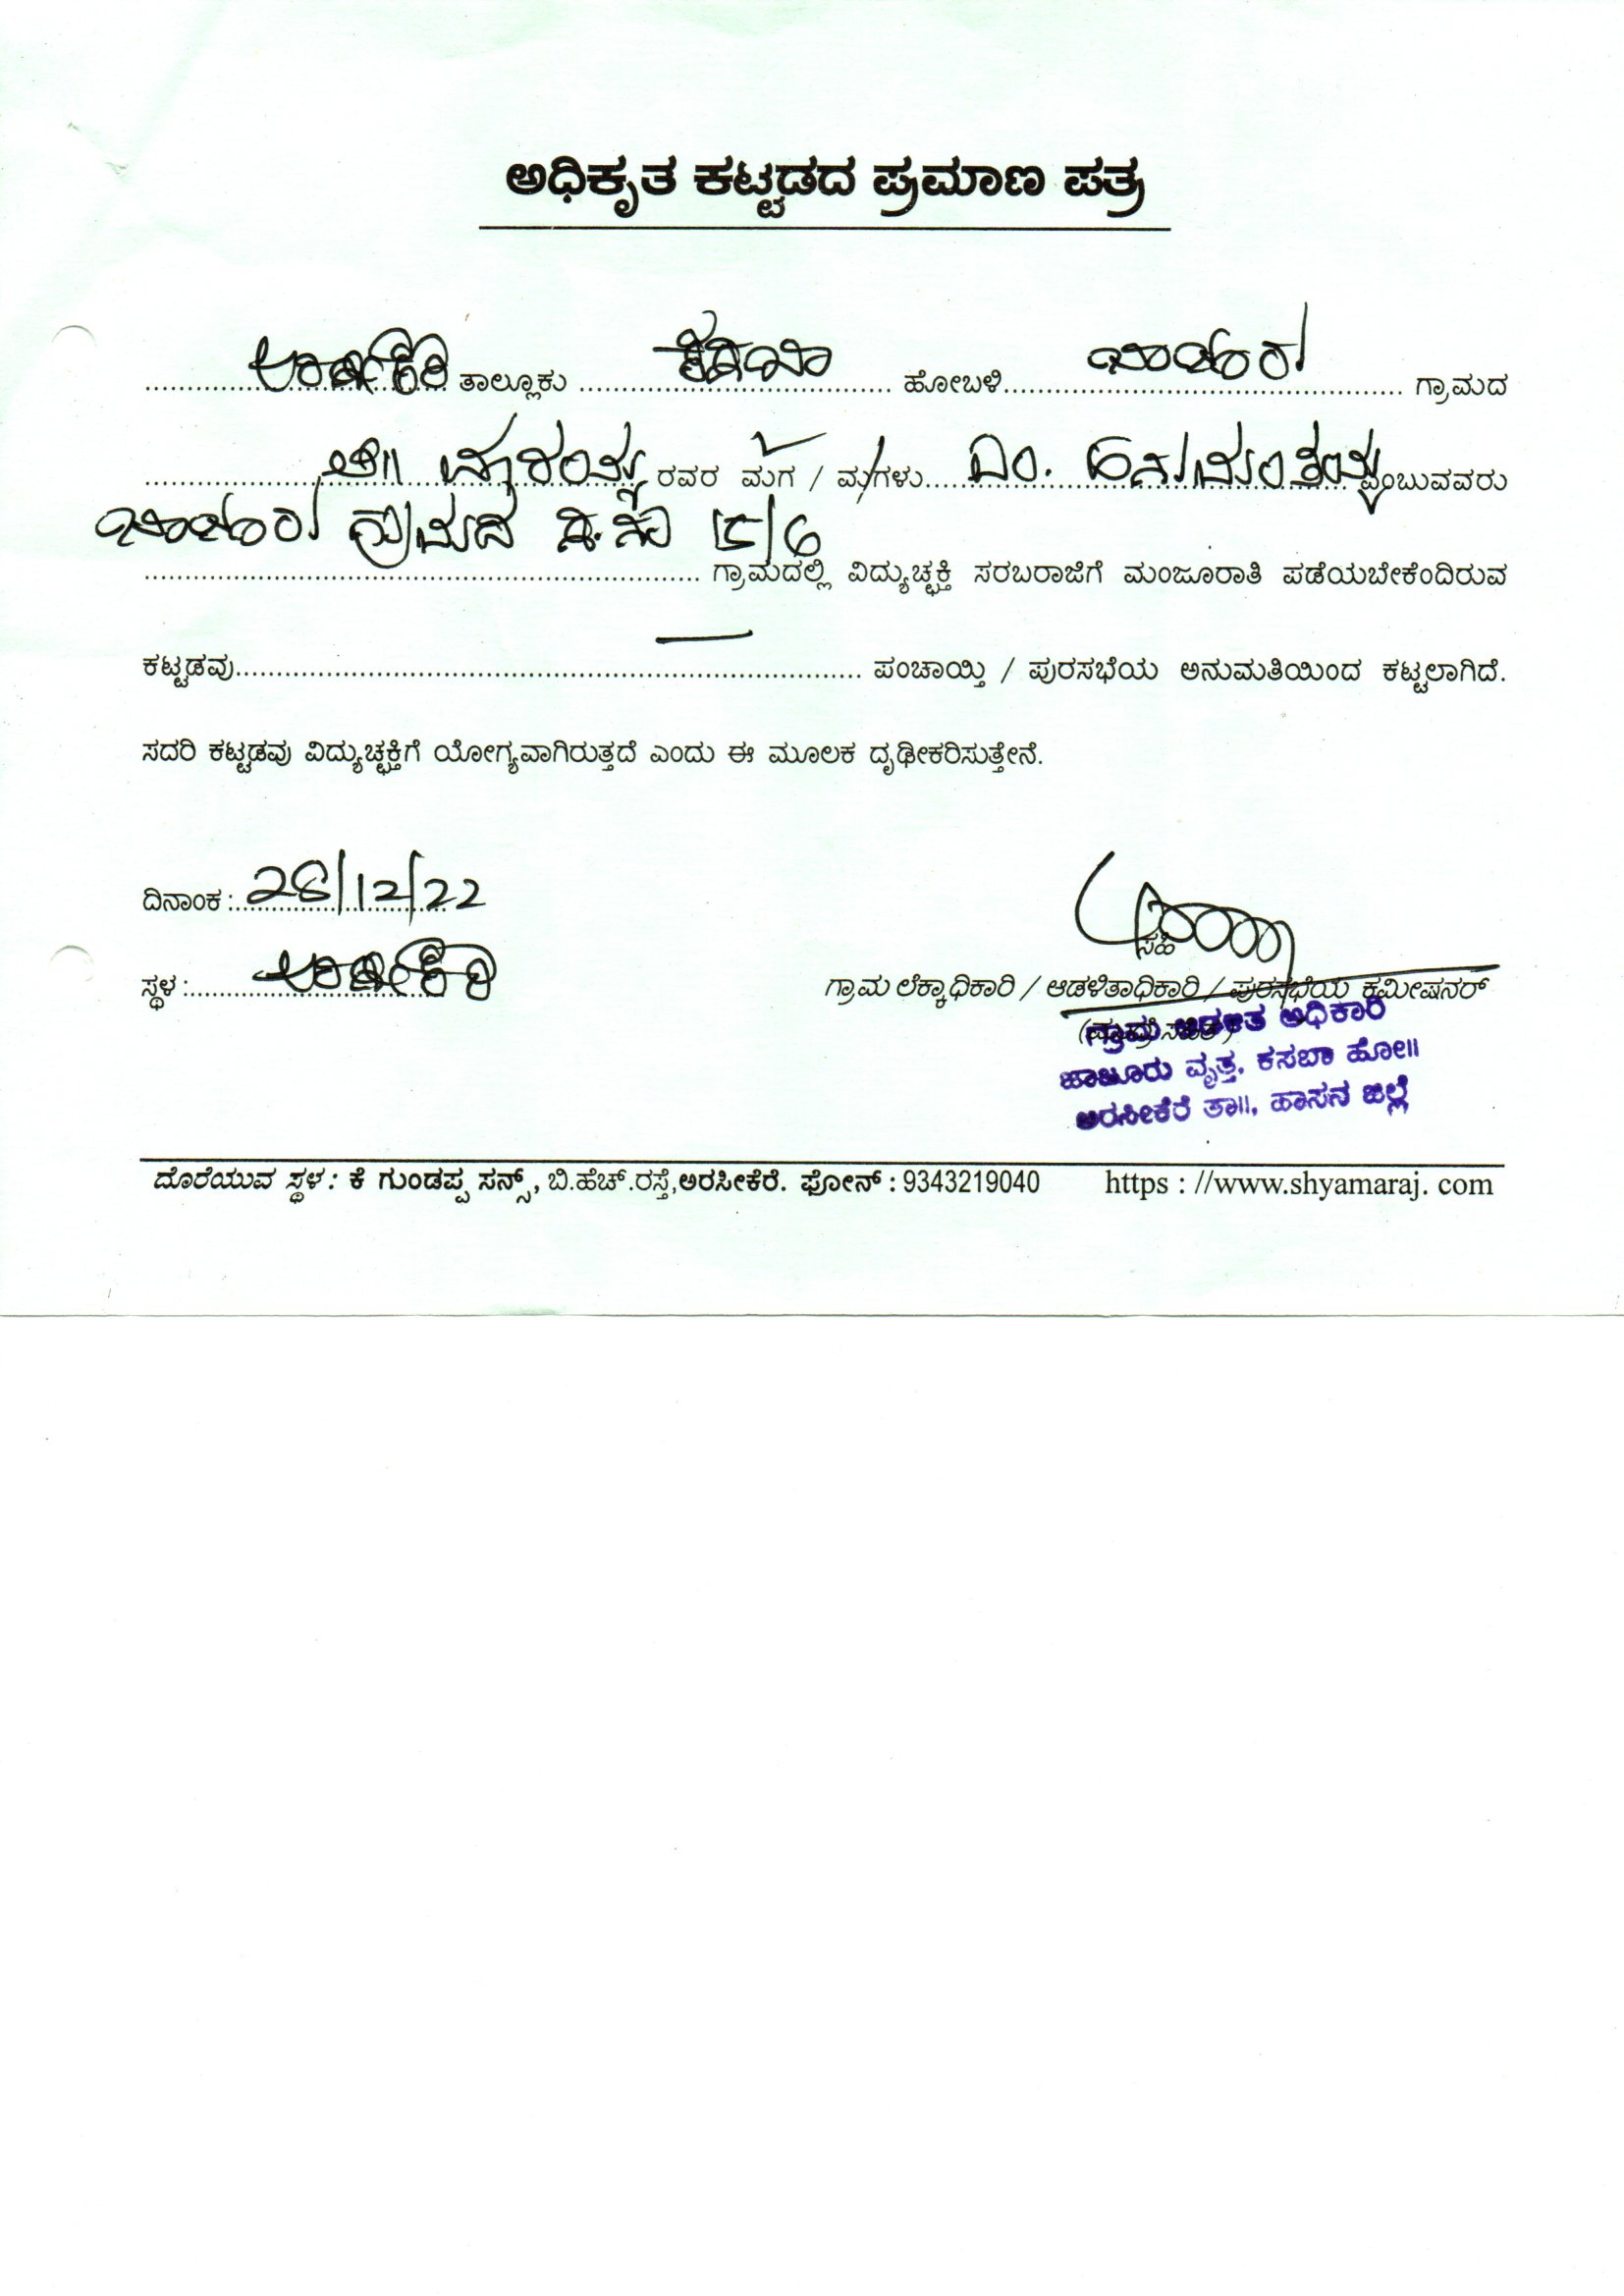 ಅಧಿಕೃತ ಕಟ್ಟಡದ ಪ್ರಮಾಣ ಪತ್ರ
ಅರಸೀಕೆರೆ ತಾಲ್ಲೂಕು ಕಸಬಾ ಹೋಬಳಿ ಗ್ರಾಮದ
ರವರ ಮಗ / ಮಗಳು ಎಂ. ಹನುಮಂತಯ್ಯ ಎಂಬುವವರು
ಗ್ರಾಮದ 15/6
ಗ್ರಾಮದಲ್ಲಿ ವಿದ್ಯುಚ್ಛಕ್ತಿ ಸರಬರಾಜಿಗೆ ಮಂಜೂರಾತಿ ಪಡೆಯಬೇಕೆಂದಿರುವ
ಕಟ್ಟಡವು ಪಂಚಾಯ್ತಿ / ಪುರಸಭೆಯ ಅನುಮತಿಯಿಂದ ಕಟ್ಟಲಾಗಿದೆ.
ಸದರಿ ಕಟ್ಟಡವು ವಿದ್ಯುಚ್ಛಕ್ತಿಗೆ ಯೋಗ್ಯವಾಗಿರುತ್ತದೆ ಎಂದು ಈ ಮೂಲಕ ದೃಢೀಕರಿಸುತ್ತೇನೆ.
ದಿನಾಂಕ : 28/12/22
ಸಹಿ
ಸ್ಥಳ : ಅರಸೀಕೆರೆ
ಗ್ರಾಮ ಲೆಕ್ಕಾಧಿಕಾರಿ / ಆಡಳಿತಾಧಿಕಾರಿ / ಪುರಸಭೆಯ ಕಮೀಷನರ್
ಗ್ರಾಮ ಆಡಳಿತ ಅಧಿಕಾರಿ
ವೃತ್ತ, ಕಸಬಾ ಹೋ॥
ಅರಸೀಕೆರೆ ತಾ॥, ಹಾಸನ ಜಿಲ್ಲೆ
ದೊರೆಯುವ ಸ್ಥಳ : ಕೆ ಗುಂಡಪ್ಪ ಸನ್ಸ್, ಬಿ.ಹೆಚ್.ರಸ್ತೆ,ಅರಸೀಕೆರೆ. ಫೋನ್ : 9343219040 https : //www.shyamaraj. com